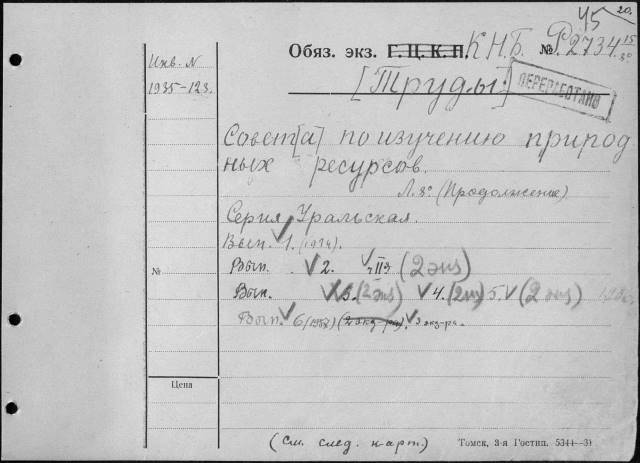 45 20.
Обяз. экз. Г.Ц.К.П. К.Н.Б. № Р.2734 15
Инв. N
1935-123.
[Труды]
ПЕРЕРАБОТАНО
Совет[а] по изучению природ
ных ресурсов.
Л. 8° (Продолжение)
Серия Уральская.
Вып. 1. (1934).
№
Вып. 2. (2 экз)
Вып. 3. (2 экз) 4. (2 экз) 5. (2 экз)
Вып. 6 (2 экз-ра). 3 экз-ра.
Цена
(См. след. карт.)
Томск, 3-я Гостип.